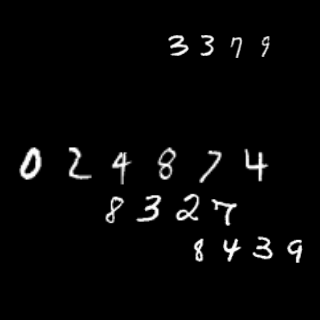 3 3 7 9
0 2 4 8 7 4
8 3 2 7
8 4 3 9